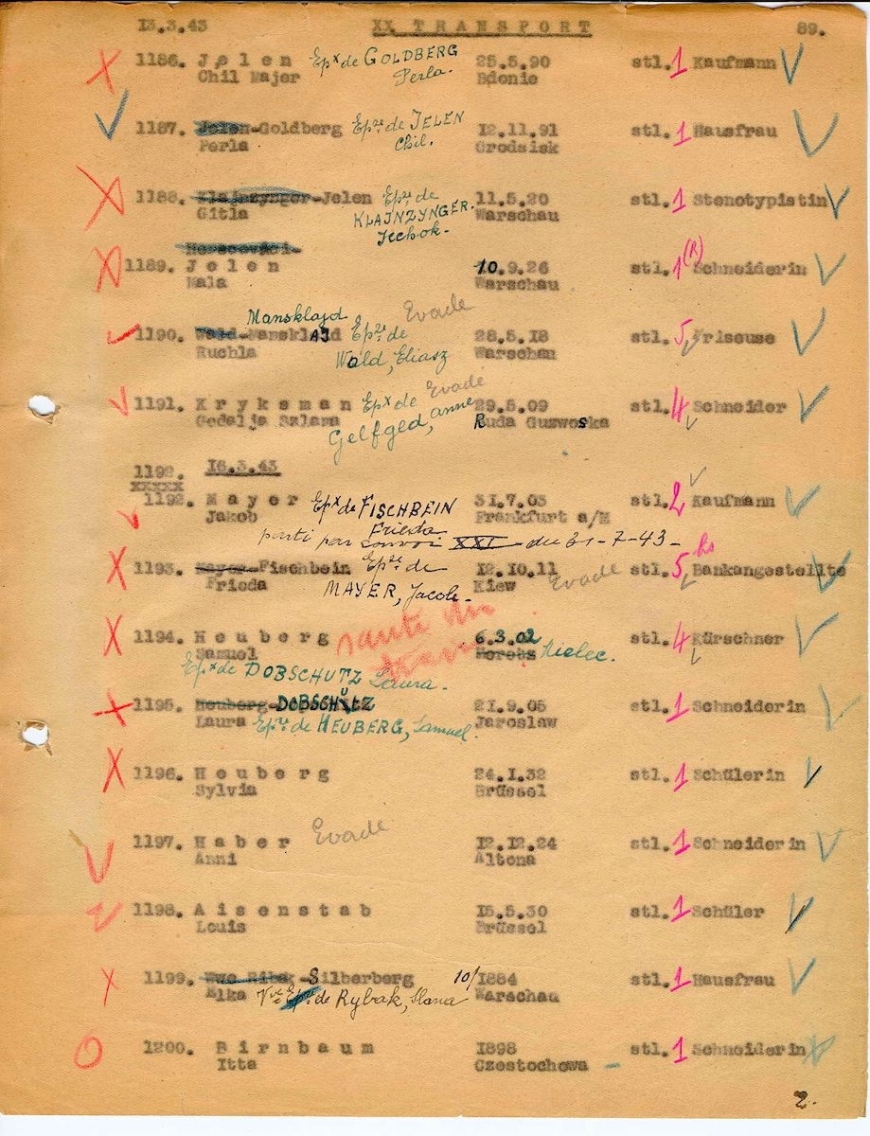 13.3.43 XX TRANSPORT 89.
1186. Jelen Epx de GOLDBERG 25.5.90 stl. 1 Kaufmann
Chil Majer Perla. Bdonie
1187. Jelen-Goldberg Epse de JELEN 12.11.91 stl. 1 Hausfrau
Perla Chil. Grodsisk
1188. Klajnzynger-Jelen Epse de 11.5.20 stl. 1 Stenotypistin
Gitla KLAJNZYNGER. Warschau
Icchok.
1189. Jelen 10.9.26 stl. 1 (R) Schneiderin
Mala Warschau
Mansklajd Evadé
1190. Wald-Mansklajd Epse de 28.5.18 stl. 5 Friseuse
Ruchla Wald, Eliasz Warschau
1191. Kryksman Epx de Evadé 29.5.09 stl. 4 Schneider
Gedelja Szlama Gelfged, anne Ruda Guzwoska
1192. 16.3.43
xxxxx
1192. Mayer Epx de FISCHBEIN 31.7.03 stl. 2 Kaufmann
Jakob Frieda Frankfurt a/M
parti par convoi XXI du 31-7-43-
1193. Mayer-Fischbein Epse de 12.10.11 stl. 5 Bankangestellte
Frieda MAYER, Jacob. Kiew Evadé
1194. Heuberg sauté du 6.3.02 stl. 4 Kürschner
Samuel train Mielec.
Epx de DOBSCHUTZ Laura.
1195. Heuberg-DOBSCHÜTZ 21.9.05 stl. 1 Schneiderin
Laura Epse de HEUBERG, Samuel. Jaroslaw
1196. Heuberg 24.I.32 stl. 1 Schülerin
Sylvia Brüssel
1197. Haber Evadé 12.12.24 stl. 1 Schneiderin
Anni Altona
1198. Aisenstab 15.5.30 stl. 1 Schüler
Louis Brüssel
1199. Silberberg 10/1884 stl. 1 Hausfrau
Elka Vve de Rybak, Slama Warschau
1200. Birnbaum 1898 stl. 1 Schneiderin
Itta Czestochowa
2.